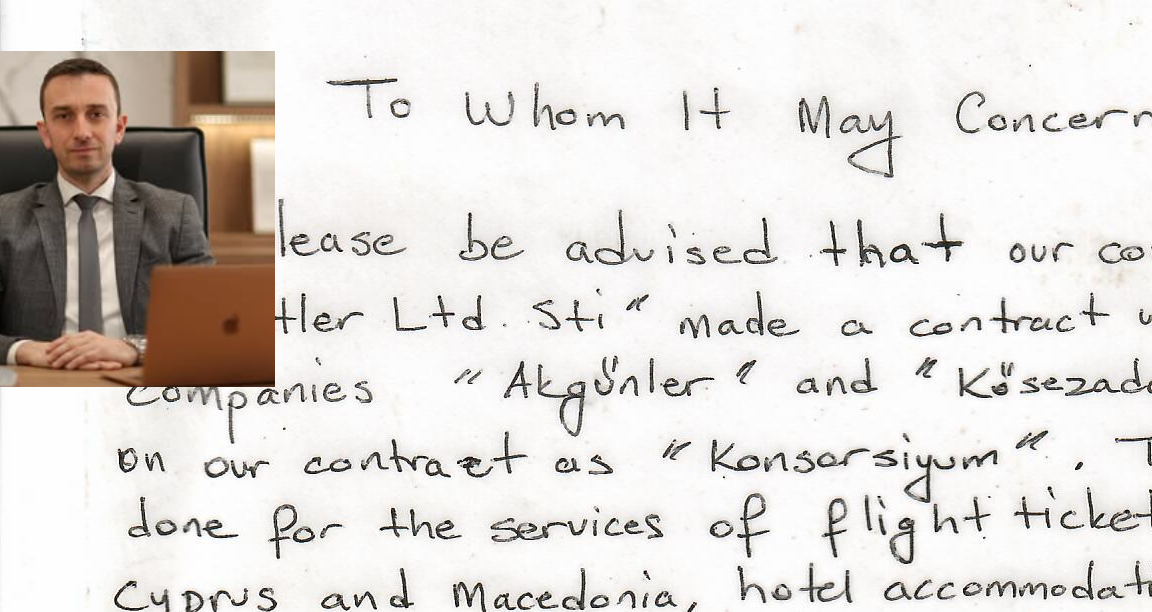 To Whom It May Concern
lease be advised that our co
tler Ltd. Sti" made a contract
Companies "Akgünler" and "Kösezad
on our contract as "Konsorsiyum". T
done for the services of flight ticket
Cyprus and Macedonia, hotel accommodat